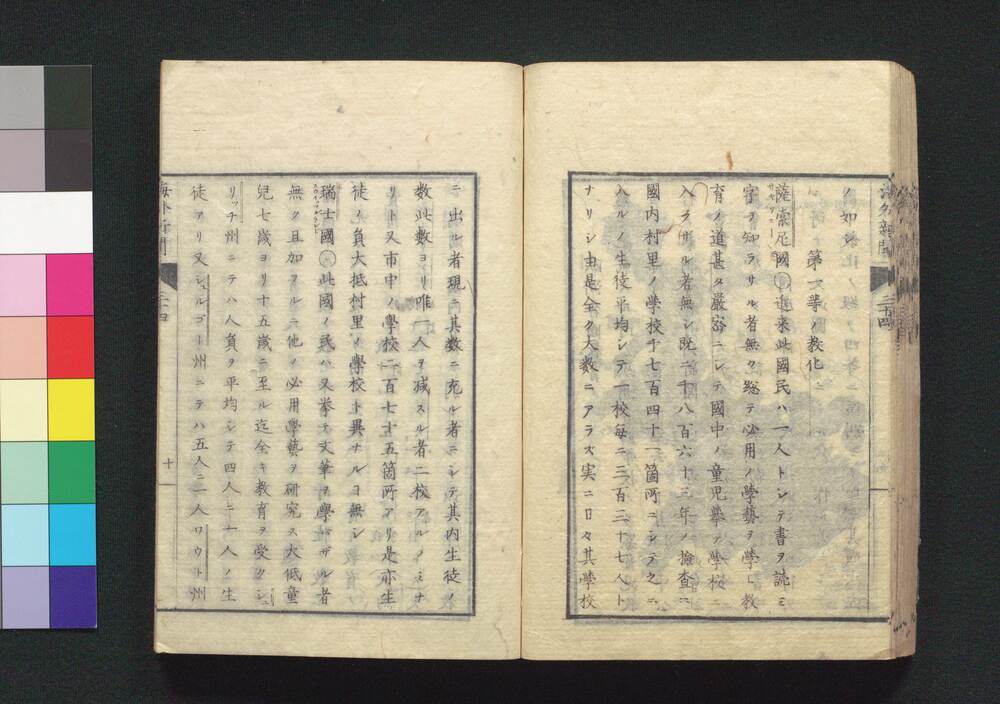 ノ如シ
第一等ノ教化
薩索尼國 進来此國民ハ一人トシテ書ヲ読ミ
サキソニー
字ヲ知ラサル者無ク総テ必用ノ學藝ヲ學ヒ教
育ノ道甚タ嚴密ニシテ國中ノ童児挙テ學校ニ
入ラサル者無シ既ニ千八百六十三年ノ檢査ニ
國内村里ノ學校千七百四十一箇所ニシテ之ニ
入ルノ生徒平均シテ一校毎ニ三百三十七人ト
ナリシ由是全ク大数ニアラス実ニ日々其學校
海外新聞
三十四
ニ出ル者現ニ其数ニ充ル者ニシテ其内生徒ノ
数此數ヨリ唯一人ヲ減スル者二校アルノミナ
リト又市中ノ學校二百七十五箇所アリ是亦生
徒ノ員大抵村里ノ學校ト異ナルヿ無シ
瑞士國 此國ノ民ハ又挙テ文筆ヲ學ハザル者
無ク且加フルニ他ノ必用學藝ヲ研究ス大低童
兒七歳ヨリ十五歳ニ至ル迄全キ教育ヲ受ク シュ
リッチ州ニテハ人員ヲ平均シテ四人ニ一人ノ生
徒アリ又シュルゴー州ニテハ五人ニ一人ワウト州
海外新聞
三十四
十一